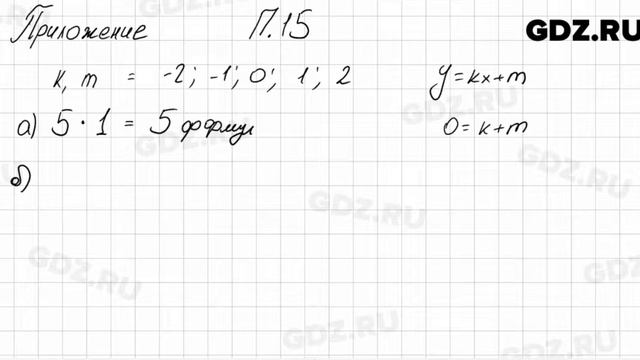 Приложение П.15 GDZ.RU
k, m = -2; -1; 0; 1; 2 y = kx+m
а) 5 · 1 = 5 формул 0 = k+m
б)
GDZ.RU
GDZ.RU
GDZ.RU
GDZ.RU
GDZ.RU
GDZ.RU
GDZ.RU
GDZ.RU
GDZ.RU